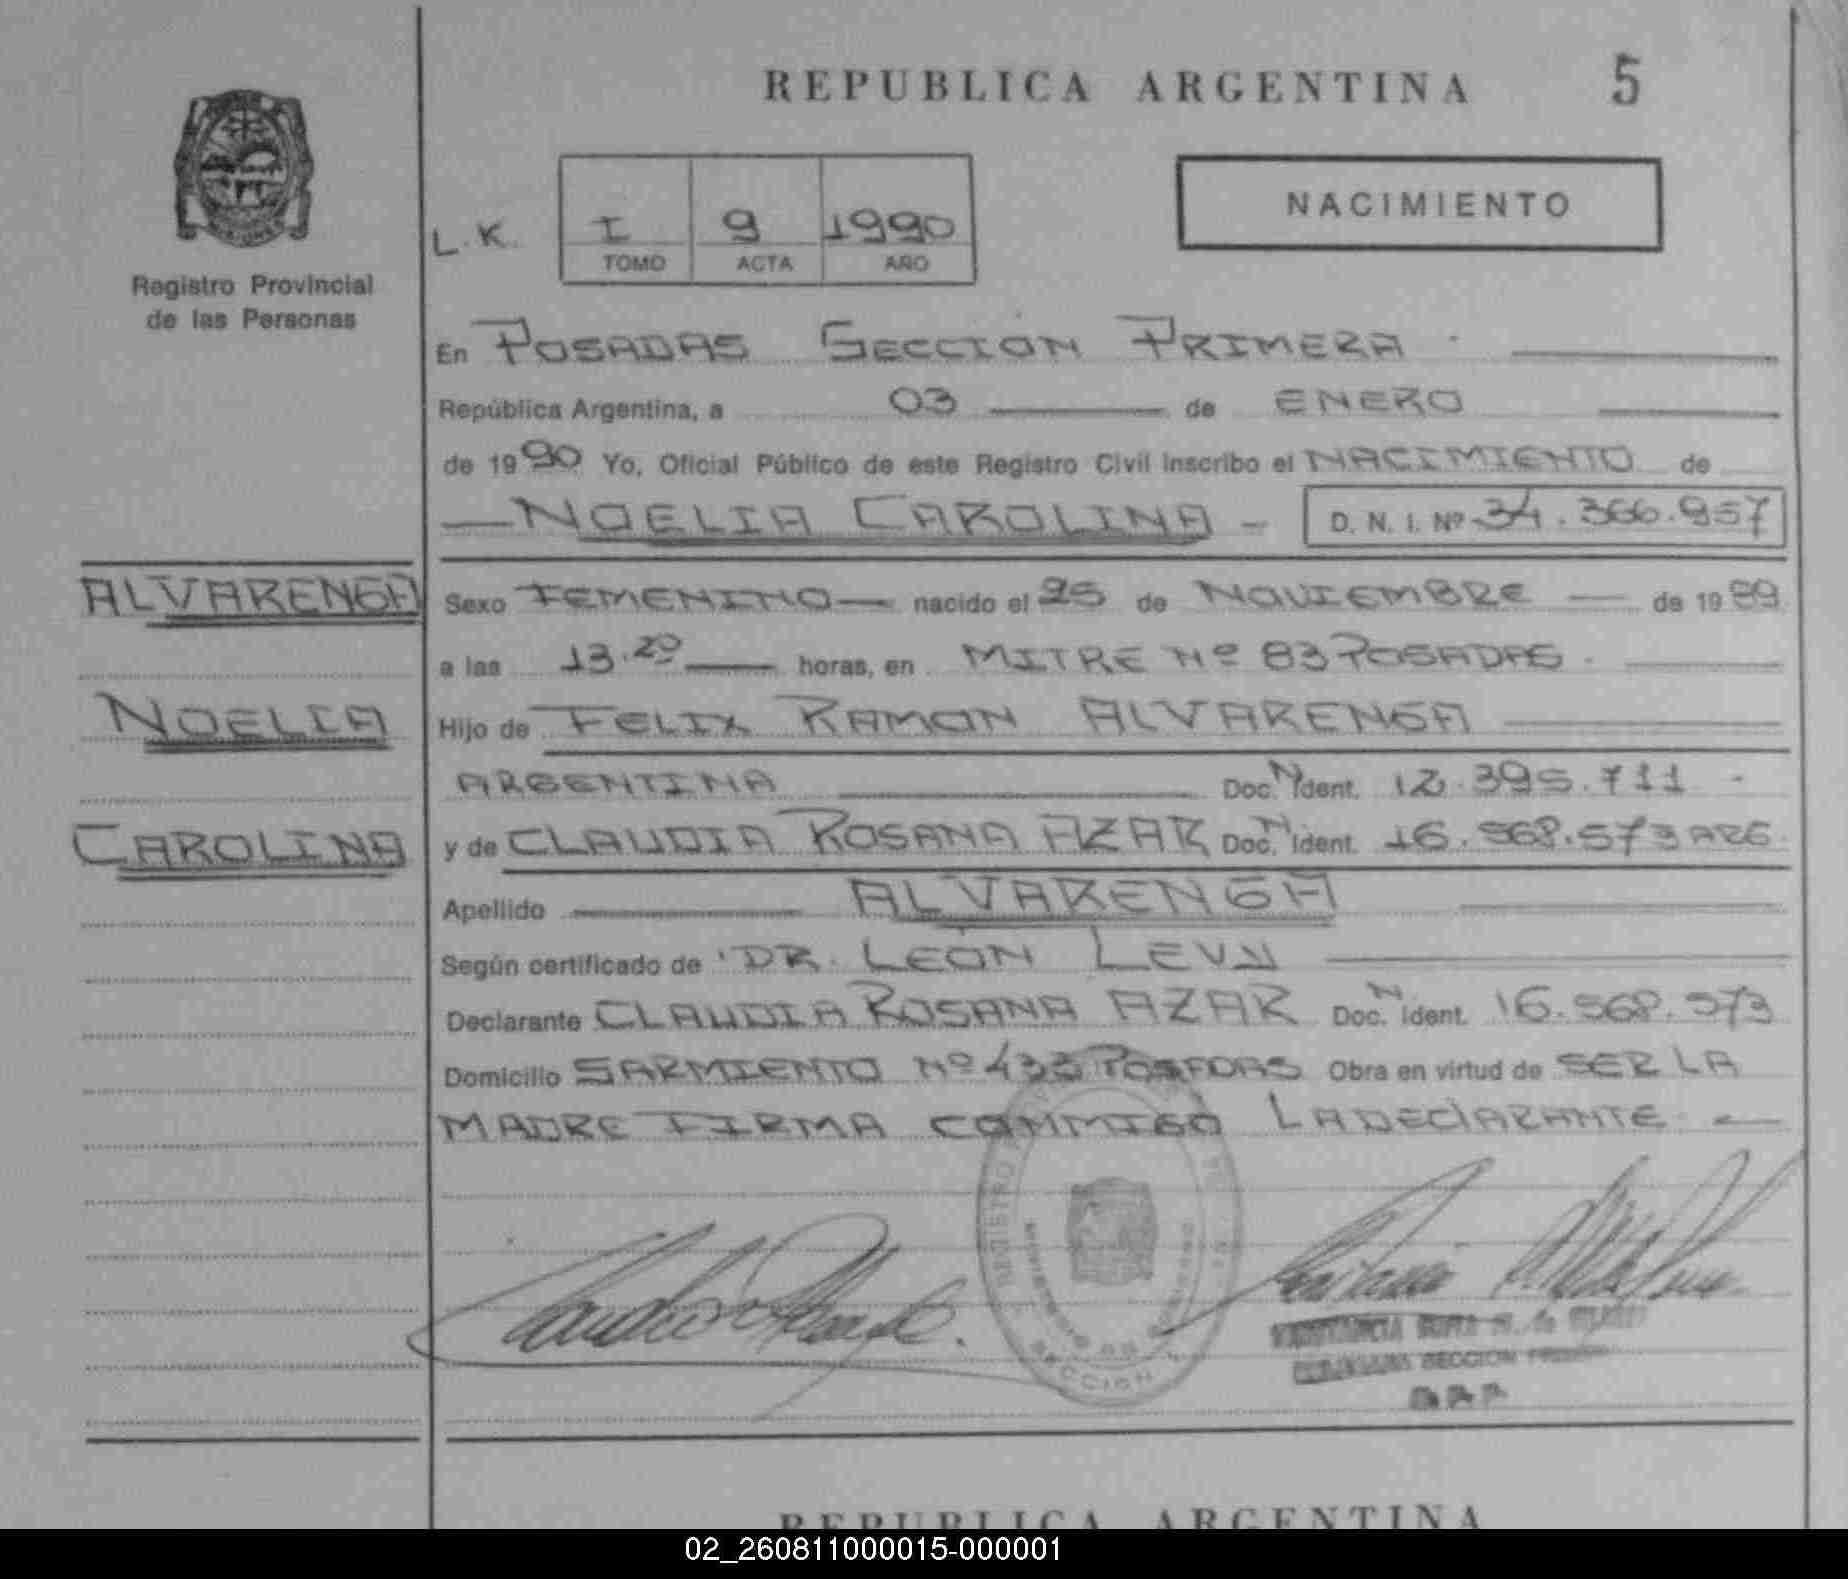 REPUBLICA ARGENTINA 5
Registro Provincial
de las Personas
L.K. I 9 1990
TOMO ACTA AÑO
NACIMIENTO
En POSADAS SECCION PRIMERA
República Argentina, a 03 de ENERO
de 1990 Yo, Oficial Público de este Registro Civil inscribo el NACIMIENTO de
NOELIA CAROLINA D. N. I. Nº 34.366.957
ALVARENGA
NOELIA
CAROLINA
Sexo FEMENINO nacido el 25 de NOVIEMBRE de 1989
a las 13.20 horas, en MITRE Nº 83 POSADAS.
Hijo de FELIX RAMON ALVARENGA
ARGENTINA Doc. N Ident. 12.395.711 -
y de CLAUDIA ROSANA AZAR Doc. N Ident. 16.568.573 ARG.
Apellido ALVARENGA
Según certificado de DR. LEÓN LEVY
Declarante CLAUDIA ROSANA AZAR Doc. N Ident. 16.568.573
Domicilio SARMIENTO Nº 433 POSADAS Obra en virtud de SER LA
MADRE FIRMA CONMIGO LA DECLARANTE.
REGISTRO
SECCION
SECCION
REPUBLICA ARGENTINA
02_260811000015-000001